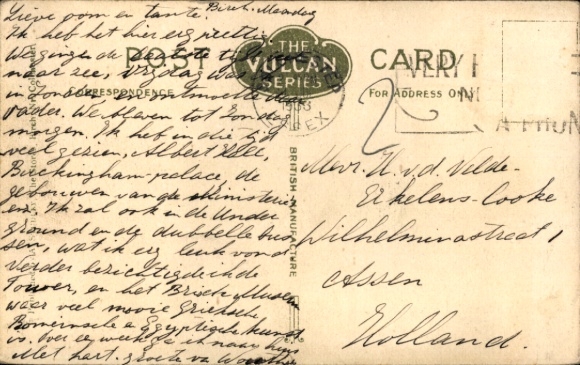 Lieve oom en tante. Birch. Maandag
Ik heb het hier erg prettig
We gingen de
naar zee, Vrijdag was
in Londen en ontmoette daar
vader. We bleven tot Zondag
morgen. Ik heb in die tijd
veel gezien, Albert Hall,
Buckingham-palace, de
gebouwen van de ministerie
en. Ik zat ook in de Under
ground en de dubbelle bus
sen, wat ik erg leuk vond
Verder bezichtigde ik de
Tower, en het Britsch Museum
waar veel mooie Grieksche,
Romeinsche & Egyptische kunst
is. Over een week ga ik naar huis
Met hart. groete van
POST CARD
THE
VULCAN
SERIES
CORRESPONDENCE
FOR ADDRESS ONLY
BRITISH MANUFACTURE
VERY
A PHON
ESSEX
2
Mevr. H. v. d. Velde-
Erkelens-Cooke
Wilhelminastraat 1
Assen
Holland.